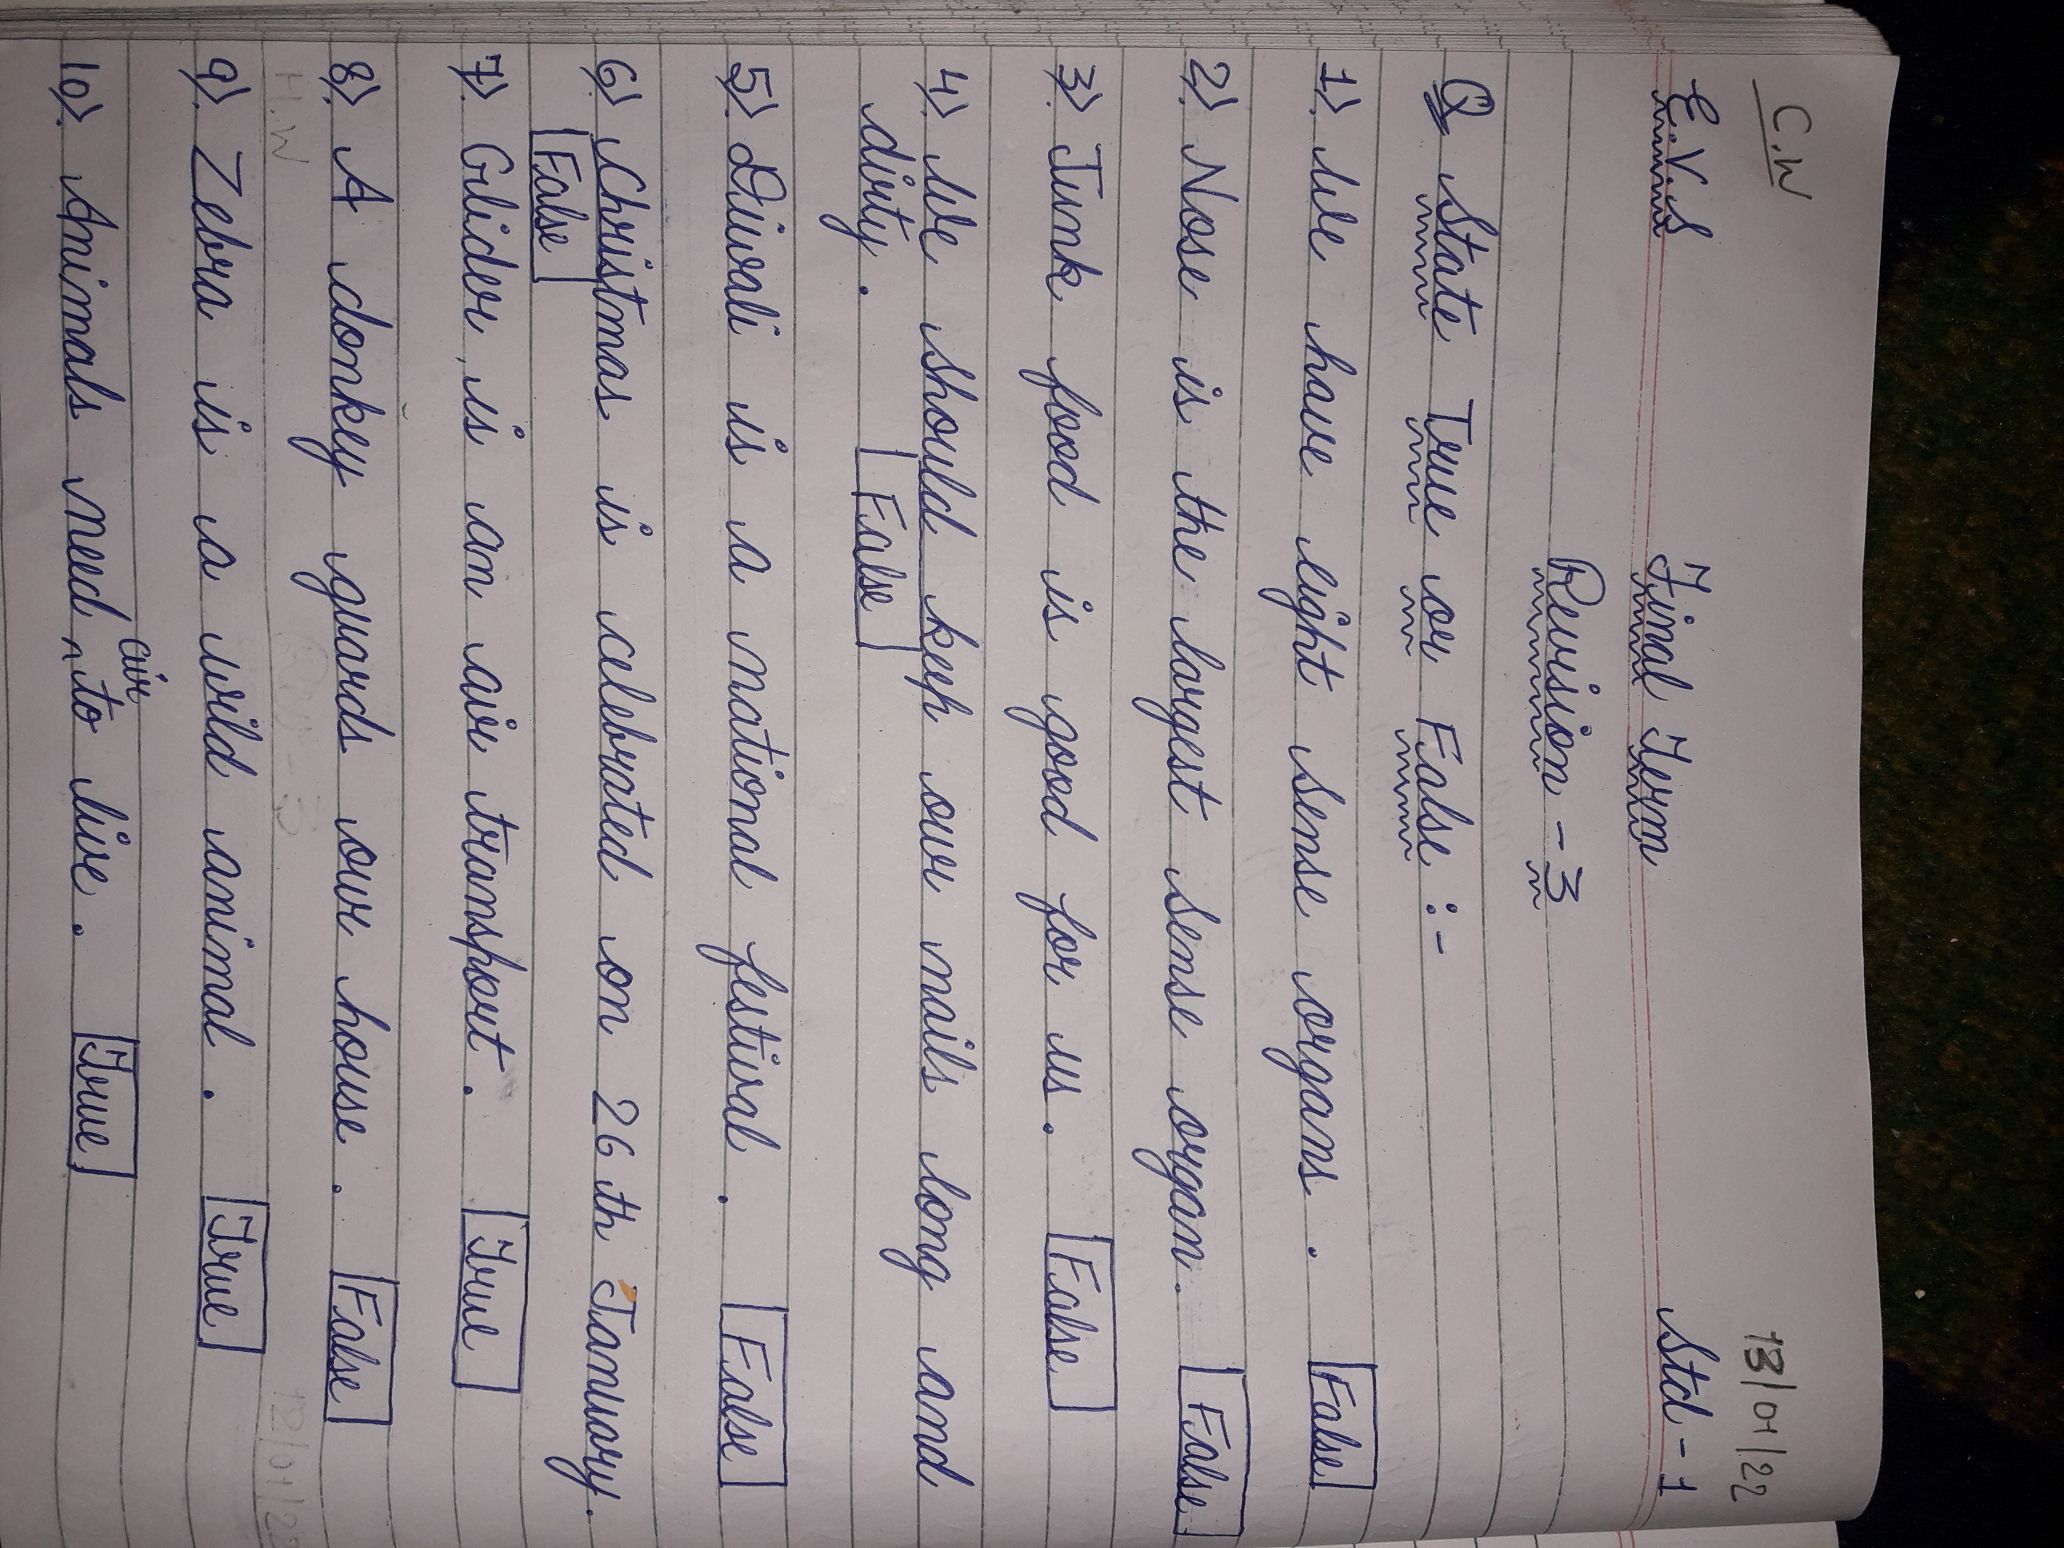 C.W
13/01/22
E.V.S Final Term Std-1
Revision - 3
Q State True or False :-
1) We have eight sense organs. False
2) Nose is the largest sense organ. False
3) Junk food is good for us. False
4) We should keep our nails long and
dirty. False
5) Diwali is a national festival. False
6) Christmas is celebrated on 26th January.
False
7) Glider is an air transport. True
8) A donkey guards our house. False
9) Zebra is a wild animal. True
10) Animals need air to live. True